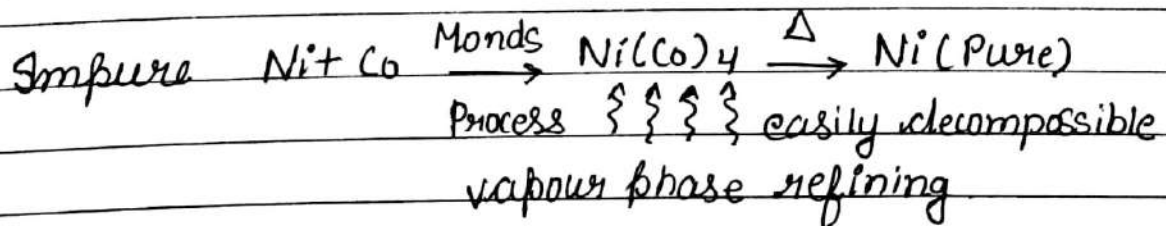 Impure Ni + Co $\xrightarrow[\text{Process}]{\text{Monds}}$ Ni(Co)4 $\xrightarrow{\Delta}$ Ni (Pure)
easily decompossible
vapour phase refining